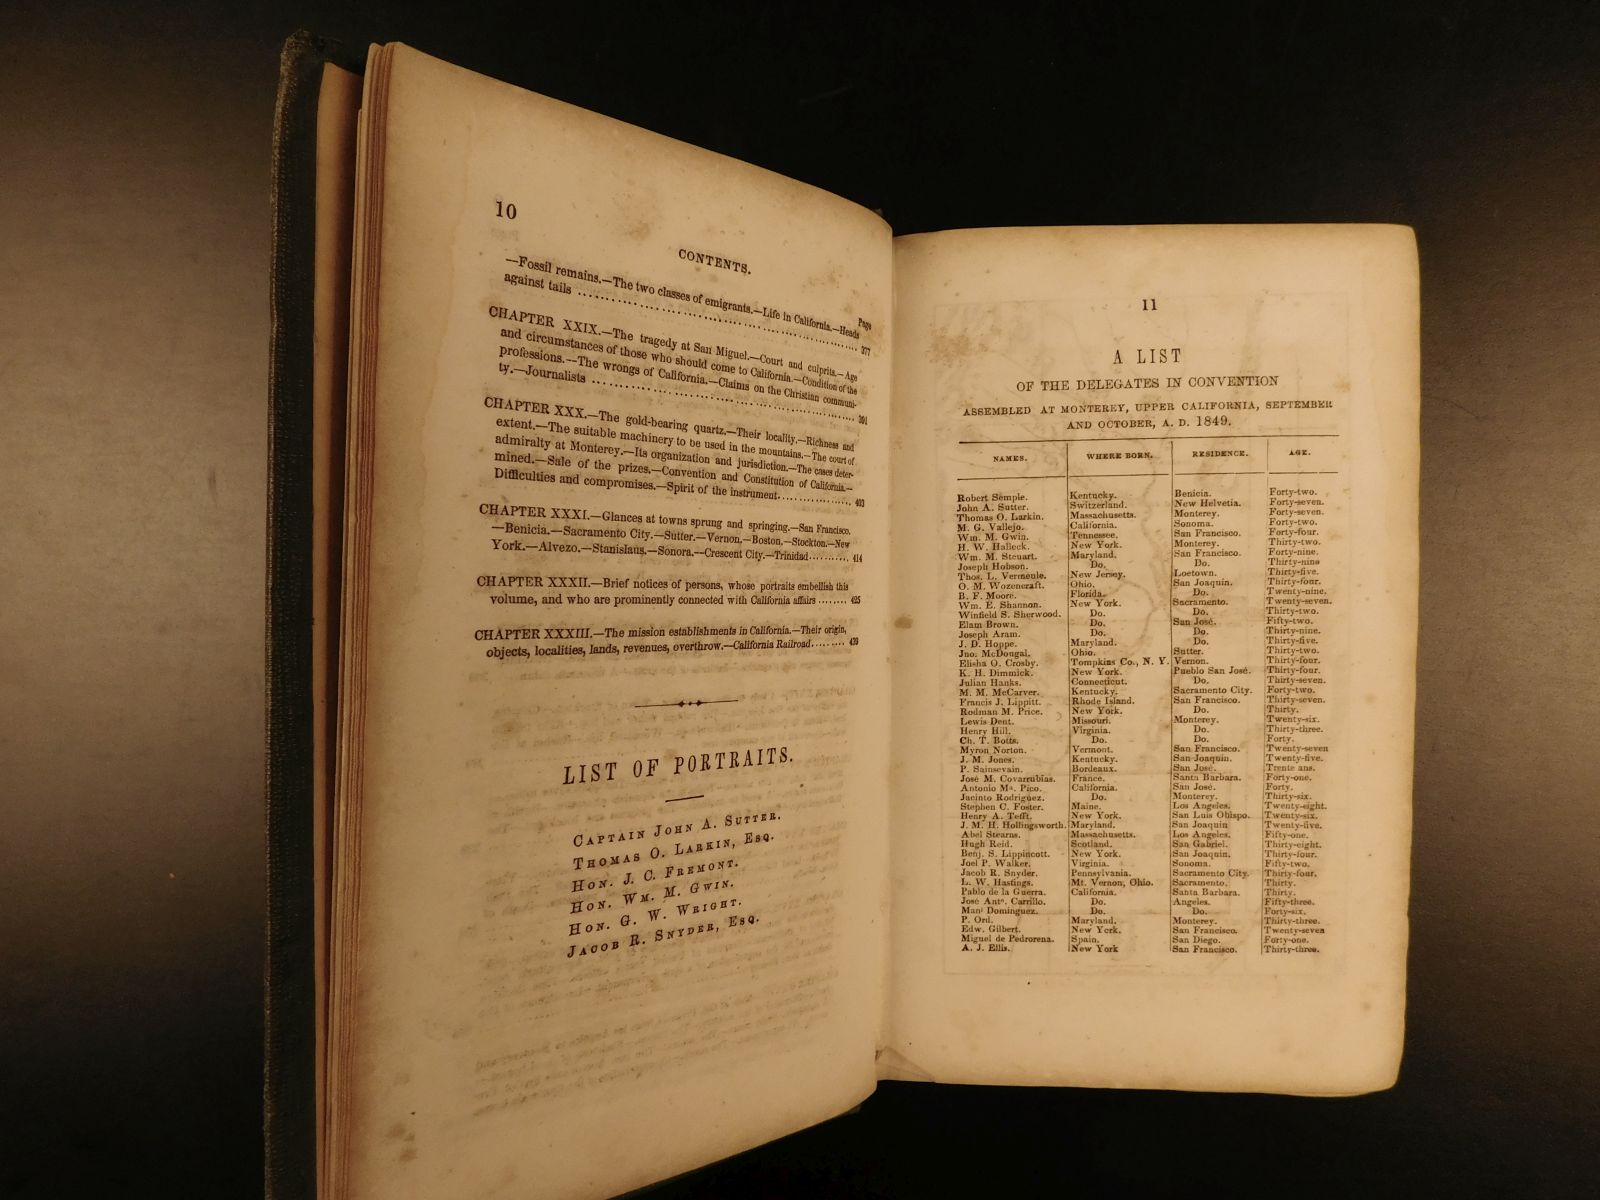 10
CONTENTS.
Page
—Fossil remains.—The two classes of emigrants.—Life in California.—Heads
against tails ........ 377
CHAPTER XXIX.—The tragedy at San Miguel.—Court and culprits.—Age
and circumstances of those who should come to California.—Condition of the
professions.—The wrongs of California.—Claims on the Christian communi-
ty.—Journalists ........ 391
CHAPTER XXX.—The gold-bearing quartz.—Their locality.—Richness and
extent.—The suitable machinery to be used in the mountains.—The court of
admiralty at Monterey.—Its organization and jurisdiction.—The cases deter-
mined.—Sale of the prizes.—Convention and Constitution of California.—
Difficulties and compromises.—Spirit of the instrument........ 403
CHAPTER XXXI.—Glances at towns sprung and springing.—San Francisco.
—Benicia.—Sacramento City.—Sutter.—Vernon.—Boston.—Stockton.—New
York.—Alvezo.—Stanislaus.—Sonora.—Crescent City.—Trinidad........ 414
CHAPTER XXXII.—Brief notices of persons, whose portraits embellish this
volume, and who are prominently connected with California affairs ........ 425
CHAPTER XXXIII.—The mission establishments in California.—Their origin,
objects, localities, lands, revenues, overthrow.—California Railroad........ 439
LIST OF PORTRAITS.
CAPTAIN JOHN A. SUTTER.
THOMAS O. LARKIN, ESQ.
HON. J. C. FREMONT.
HON. WM. M. GWIN.
HON. G. W. WRIGHT.
JACOB R. SNYDER, ESQ.
11
A LIST
OF THE DELEGATES IN CONVENTION
ASSEMBLED AT MONTEREY, UPPER CALIFORNIA, SEPTEMBER
AND OCTOBER, A. D. 1849.
NAMES. WHERE BORN. RESIDENCE. AGE.
Robert Semple. Kentucky. Benicia. Forty-two.
John A. Sutter. Switzerland. New Helvetia. Forty-seven.
Thomas O. Larkin. Massachusetts. Monterey. Forty-seven.
M. G. Vallejo. California. Sonoma. Forty-two.
Wm. M. Gwin. Tennessee. San Francisco. Forty-four.
H. W. Halleck. New York. Monterey. Thirty-two.
Wm. M. Steuart. Maryland. San Francisco. Forty-nine.
Joseph Hobson. Do. Do. Thirty-nine
Thos. L. Vermeule. New Jersey. Loetown. Thirty-five.
O. M. Wozencraft. Ohio. San Joaquin. Thirty-four.
B. F. Moore. Florida. Do. Twenty-nine.
Wm. E. Shannon. New York. Sacramento. Twenty-seven.
Winfield S. Sherwood. Do. Do. Thirty-two.
Elam Brown. Do. San José. Fifty-two.
Joseph Aram. Do. Do. Thirty-nine.
J. D. Hoppe. Maryland. Do. Thirty-five.
Jno. McDougal. Ohio. Sutter. Thirty-two.
Elisha O. Crosby. Tompkins Co., N. Y. Vernon. Thirty-four.
K. H. Dimmick. New York. Pueblo San José. Thirty-four.
Julian Hanks. Connecticut. Do. Thirty-seven.
M. M. McCarver. Kentucky. Sacramento City. Forty-two.
Francis J. Lippitt. Rhode Island. San Francisco. Thirty-seven.
Rodman M. Price. New York. Do. Thirty.
Lewis Dent. Missouri. Monterey. Twenty-six.
Henry Hill. Virginia. Do. Thirty-three.
Ch. T. Botts. Do. Do. Forty.
Myron Norton. Vermont. San Francisco. Twenty-seven
J. M. Jones. Kentucky. San Joaquin. Twenty-five.
P. Sainsevain. Bordeaux. San José. Trente ans.
José M. Covarrubias. France. Santa Barbara. Forty-one.
Antonio Mª. Pico. California. San José. Forty.
Jacinto Rodriguez. Do. Monterey. Thirty-six.
Stephen C. Foster. Maine. Los Angeles. Twenty-eight.
Henry A. Tefft. New York. San Luis Obispo. Twenty-six.
J. M. H. Hollingsworth. Maryland. San Joaquin Twenty-five.
Abel Stearns. Massachusetts. Los Angeles. Fifty-one.
Hugh Reid. Scotland. San Gabriel. Thirty-eight.
Benj. S. Lippincott. New York. San Joaquin. Thirty-four.
Joel P. Walker. Virginia. Sonoma. Fifty-two.
Jacob R. Snyder. Pennsylvania. Sacramento City. Thirty-four.
L. W. Hastings. Mt. Vernon, Ohio. Sacramento. Thirty.
Pablo de la Guerra. California. Santa Barbara. Thirty.
José Antº. Carrillo. Do. Angeles. Fifty-three.
Manl Dominguez. Do. Do. Forty-six.
P. Ord. Maryland. Monterey. Thirty-three.
Edw. Gilbert. New York. San Francisco. Twenty-seven
Miguel de Pedrorena. Spain. San Diego. Forty-one.
A. J. Ellis. New York San Francisco. Thirty-three.